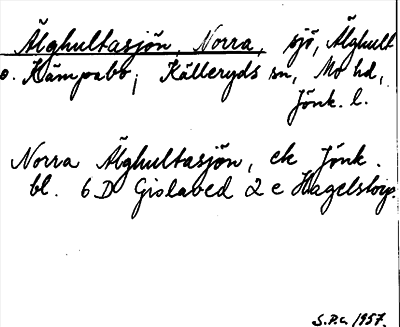 Älghultasjön, Norra, sjö, Älghult
o. Kämpabo; Källeryds sn, Mo hd,
Jönk. l.
Norra Älghultasjön, ek Jönk.
bl. 6 D Gislaved 2 e Hagelstorp.
S.P.G. 1957.